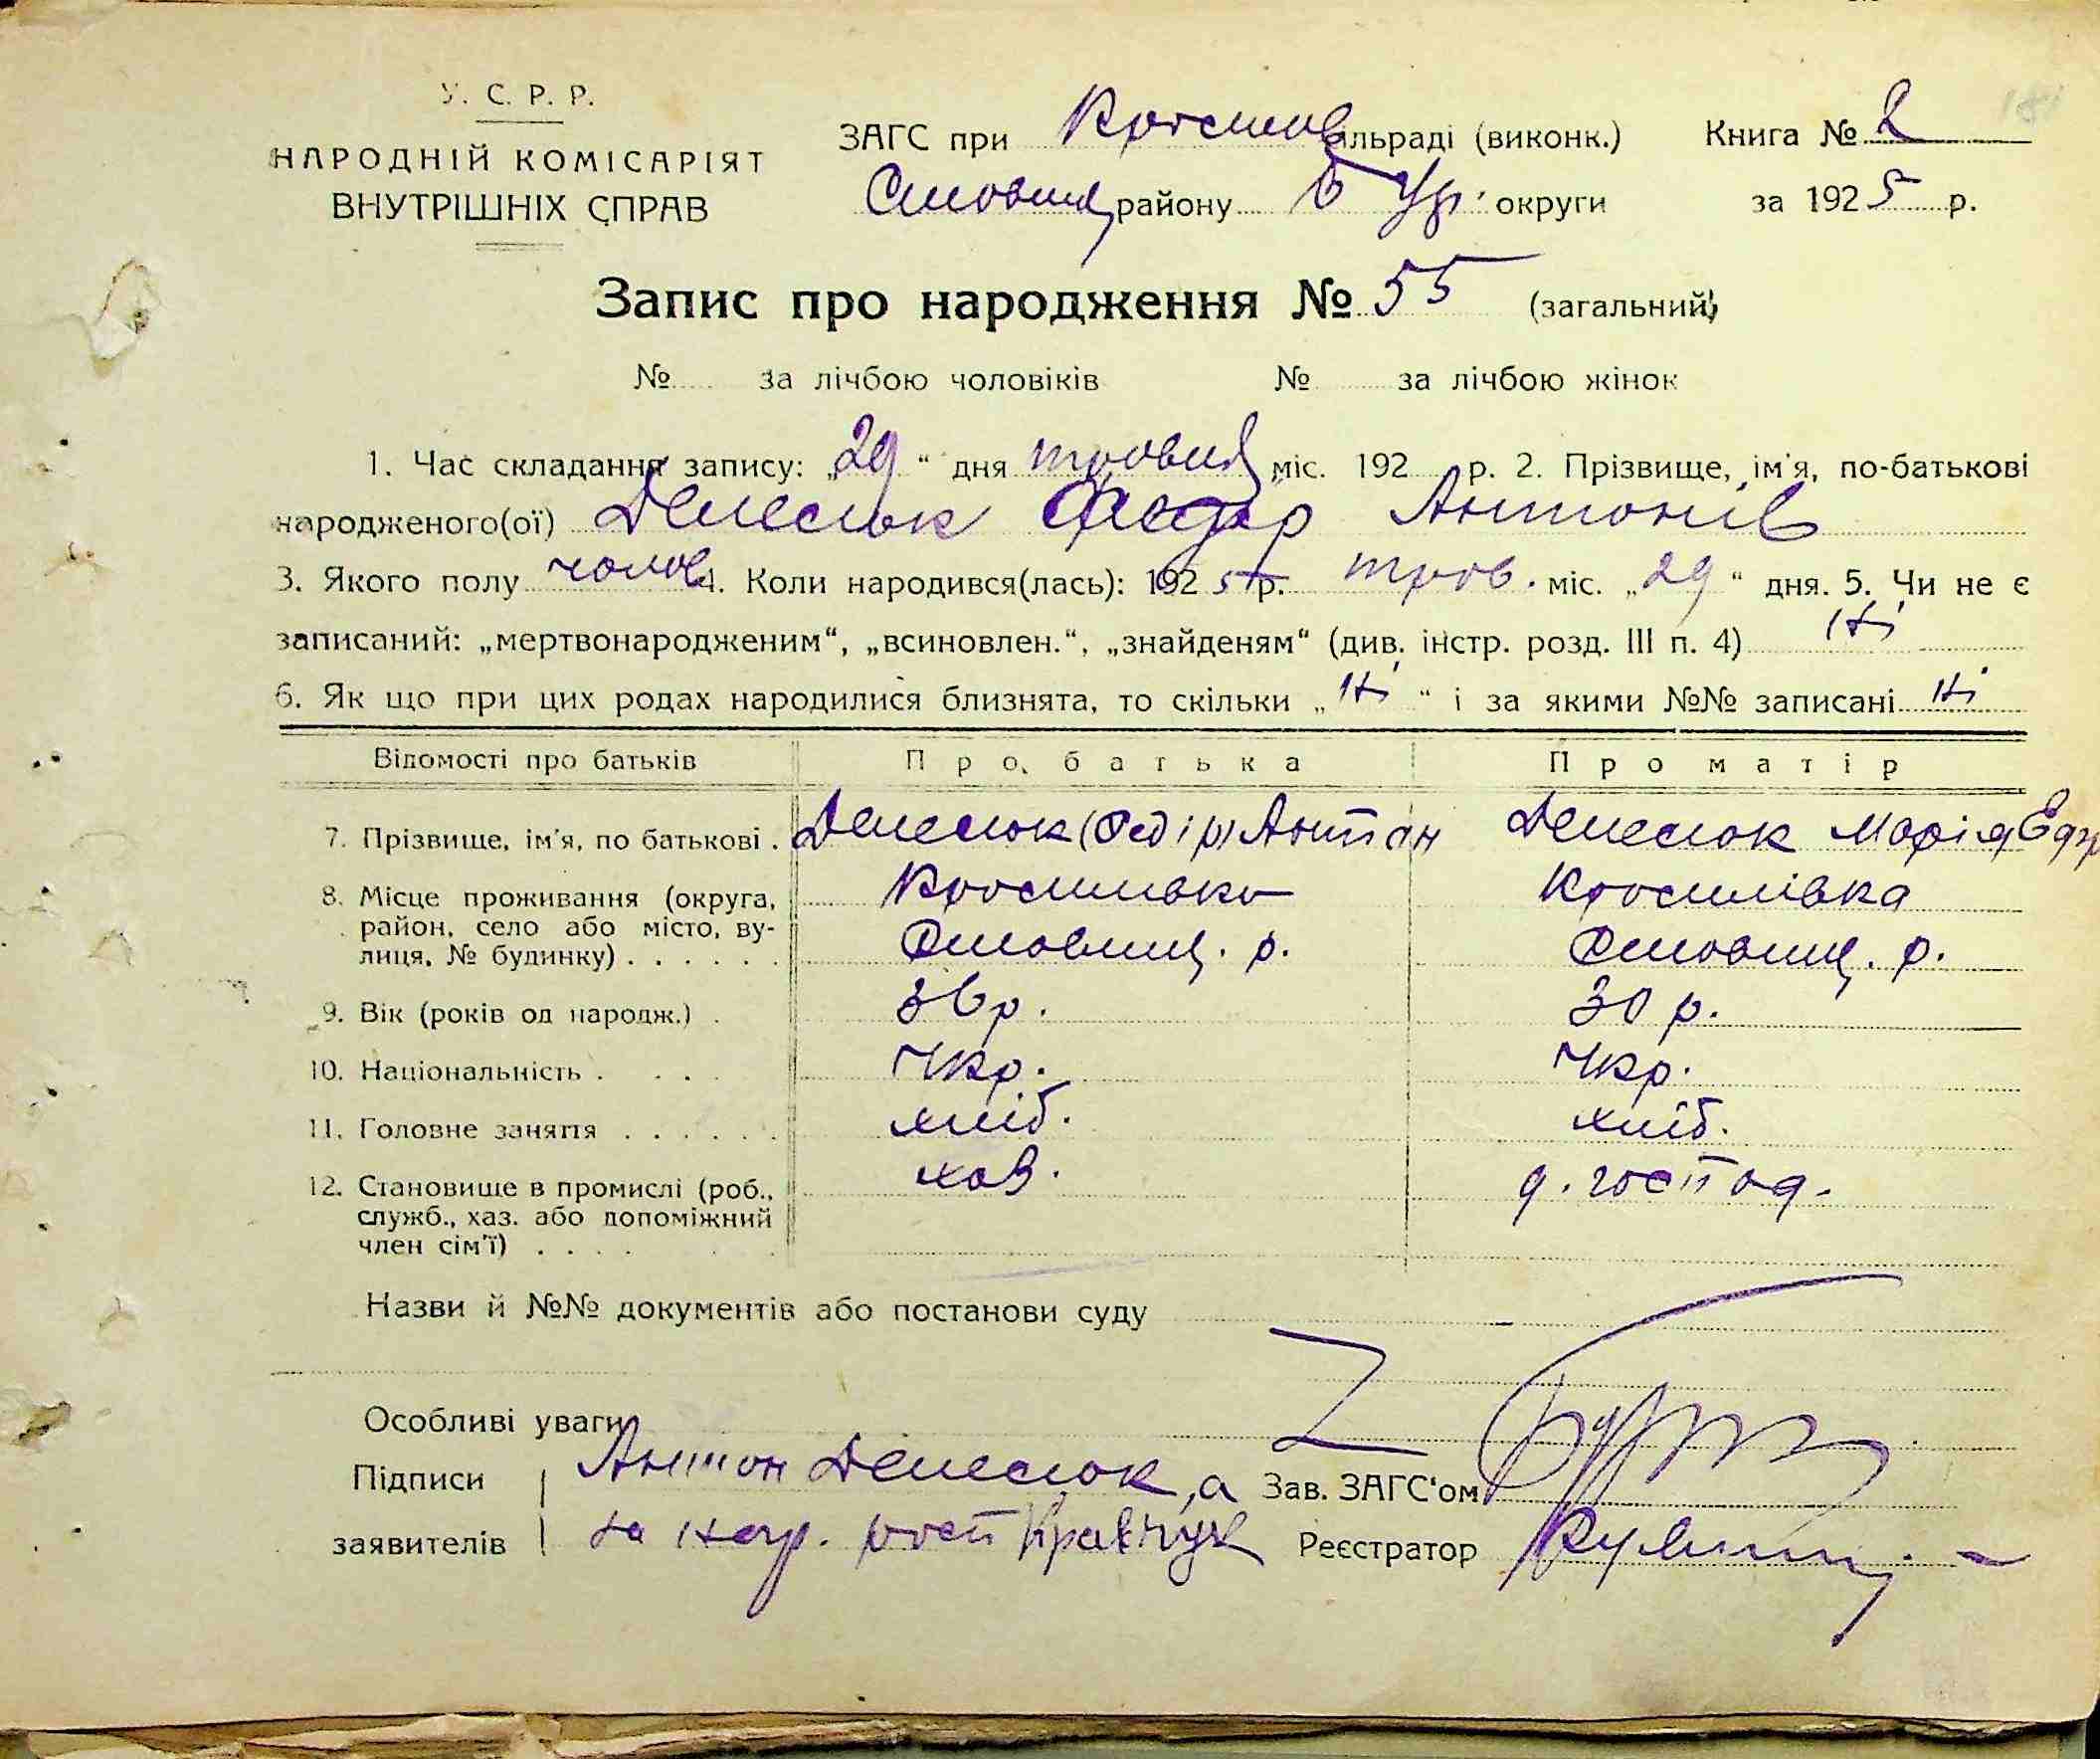 У. С. Р. Р.
НАРОДНІЙ КОМІСАРІЯТ
ВНУТРІШНІХ СПРАВ
ЗАГС при сільраді (виконк.) Книга № 2
району округи за 1925 р.
Запис про народження № 55 (загальний)
№ за лічбою чоловіків № за лічбою жінок
1. Час складання запису: „29“ дня травня міс. 192 р. 2. Прізвище, ім'я, по-батькові
народженого(ої) Денесюк Федір Антонів
3. Якого полу чолов. 4. Коли народився(лась): 1925 р. трав. міс. „29“ дня. 5. Чи не є
записаний: „мертвонародженим“, „всиновлен.“, „знайденям“ (див. інстр. розд. III п. 4) Ні
6. Як що при цих родах народилися близнята, то скільки „Ні“ і за якими №№ записані Ні
Відомості про батьків Про батька Про матір
7. Прізвище, ім'я, по батькові . Денесюк (Федір) Антон Денесюк Марія
8. Місце проживання (округа, Красилівка Красилівка
район, село або місто, ву- р. р.
лиця, № будинку) . . . . . .
9. Вік (років од народж.) . 36 р. 30 р.
10. Національність . . . . Укр. Укр.
11. Головне заняття . . . . . . хліб. хліб.
12. Становище в промислі (роб., хаз. д. господ.
служб., хаз. або допоміжний
член сім'ї) . . . .
Назви й №№ документів або постанови суду
Особливі уваги
Підписи Антон Денесюк, а Зав. ЗАГС'ом
заявителів за розп Кравчук Реєстратор